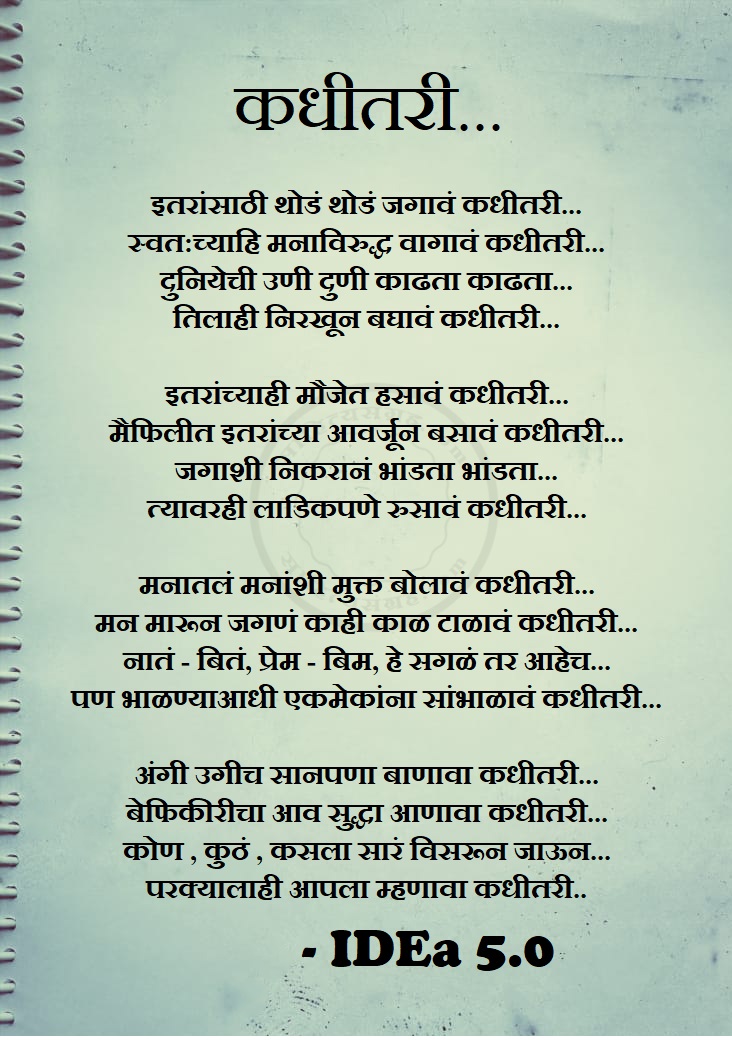 कधीतरी...
इतरांसाठी थोडं थोडं जगावं कधीतरी...
स्वत:च्याहि मनाविरुद्ध वागावं कधीतरी...
दुनियेची उणी दुणी काढता काढता...
तिलाही निरखून बघावं कधीतरी...
इतरांच्याही मौजेत हसावं कधीतरी...
मैफिलीत इतरांच्या आवर्जून बसावं कधीतरी...
जगाशी निकरानं भांडता भांडता...
त्यावरही लाडिकपणे रुसावं कधीतरी...
मनातलं मनांशी मुक्त बोलावं कधीतरी...
मन मारून जगणं काही काळ टाळावं कधीतरी...
नातं - बितं, प्रेम - बिम, हे सगळं तर आहेच...
पण भाळण्याआधी एकमेकांना सांभाळावं कधीतरी...
अंगी उगीच सानपणा बाणावा कधीतरी...
बेफिकीरीचा आव सुद्धा आणावा कधीतरी...
कोण , कुठं , कसला सारं विसरून जाऊन...
परक्यालाही आपला म्हणावा कधीतरी..
- IDEa 5.0